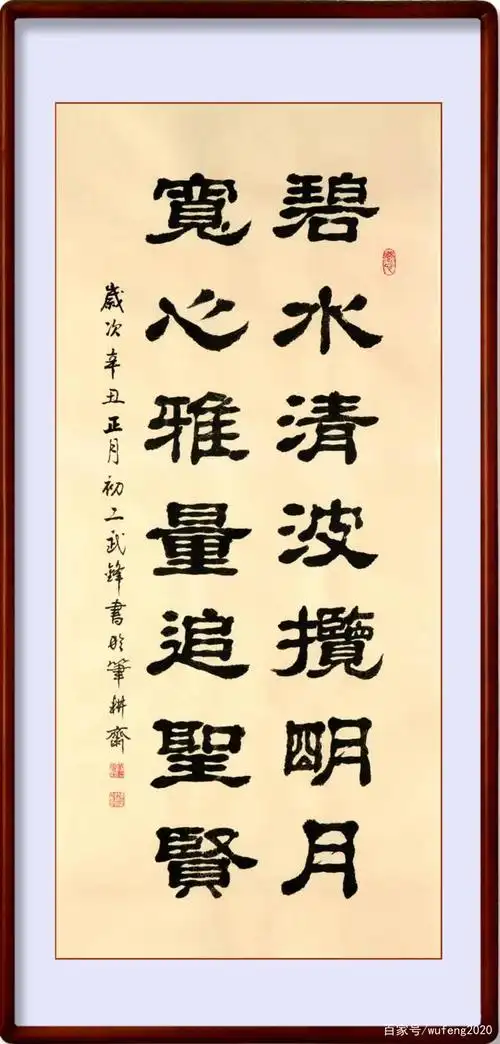 碧水清波攬明月
寬心雅量追聖賢
歲次辛丑正月初二武鋒書於筆耕齋
百家号/wufeng2020